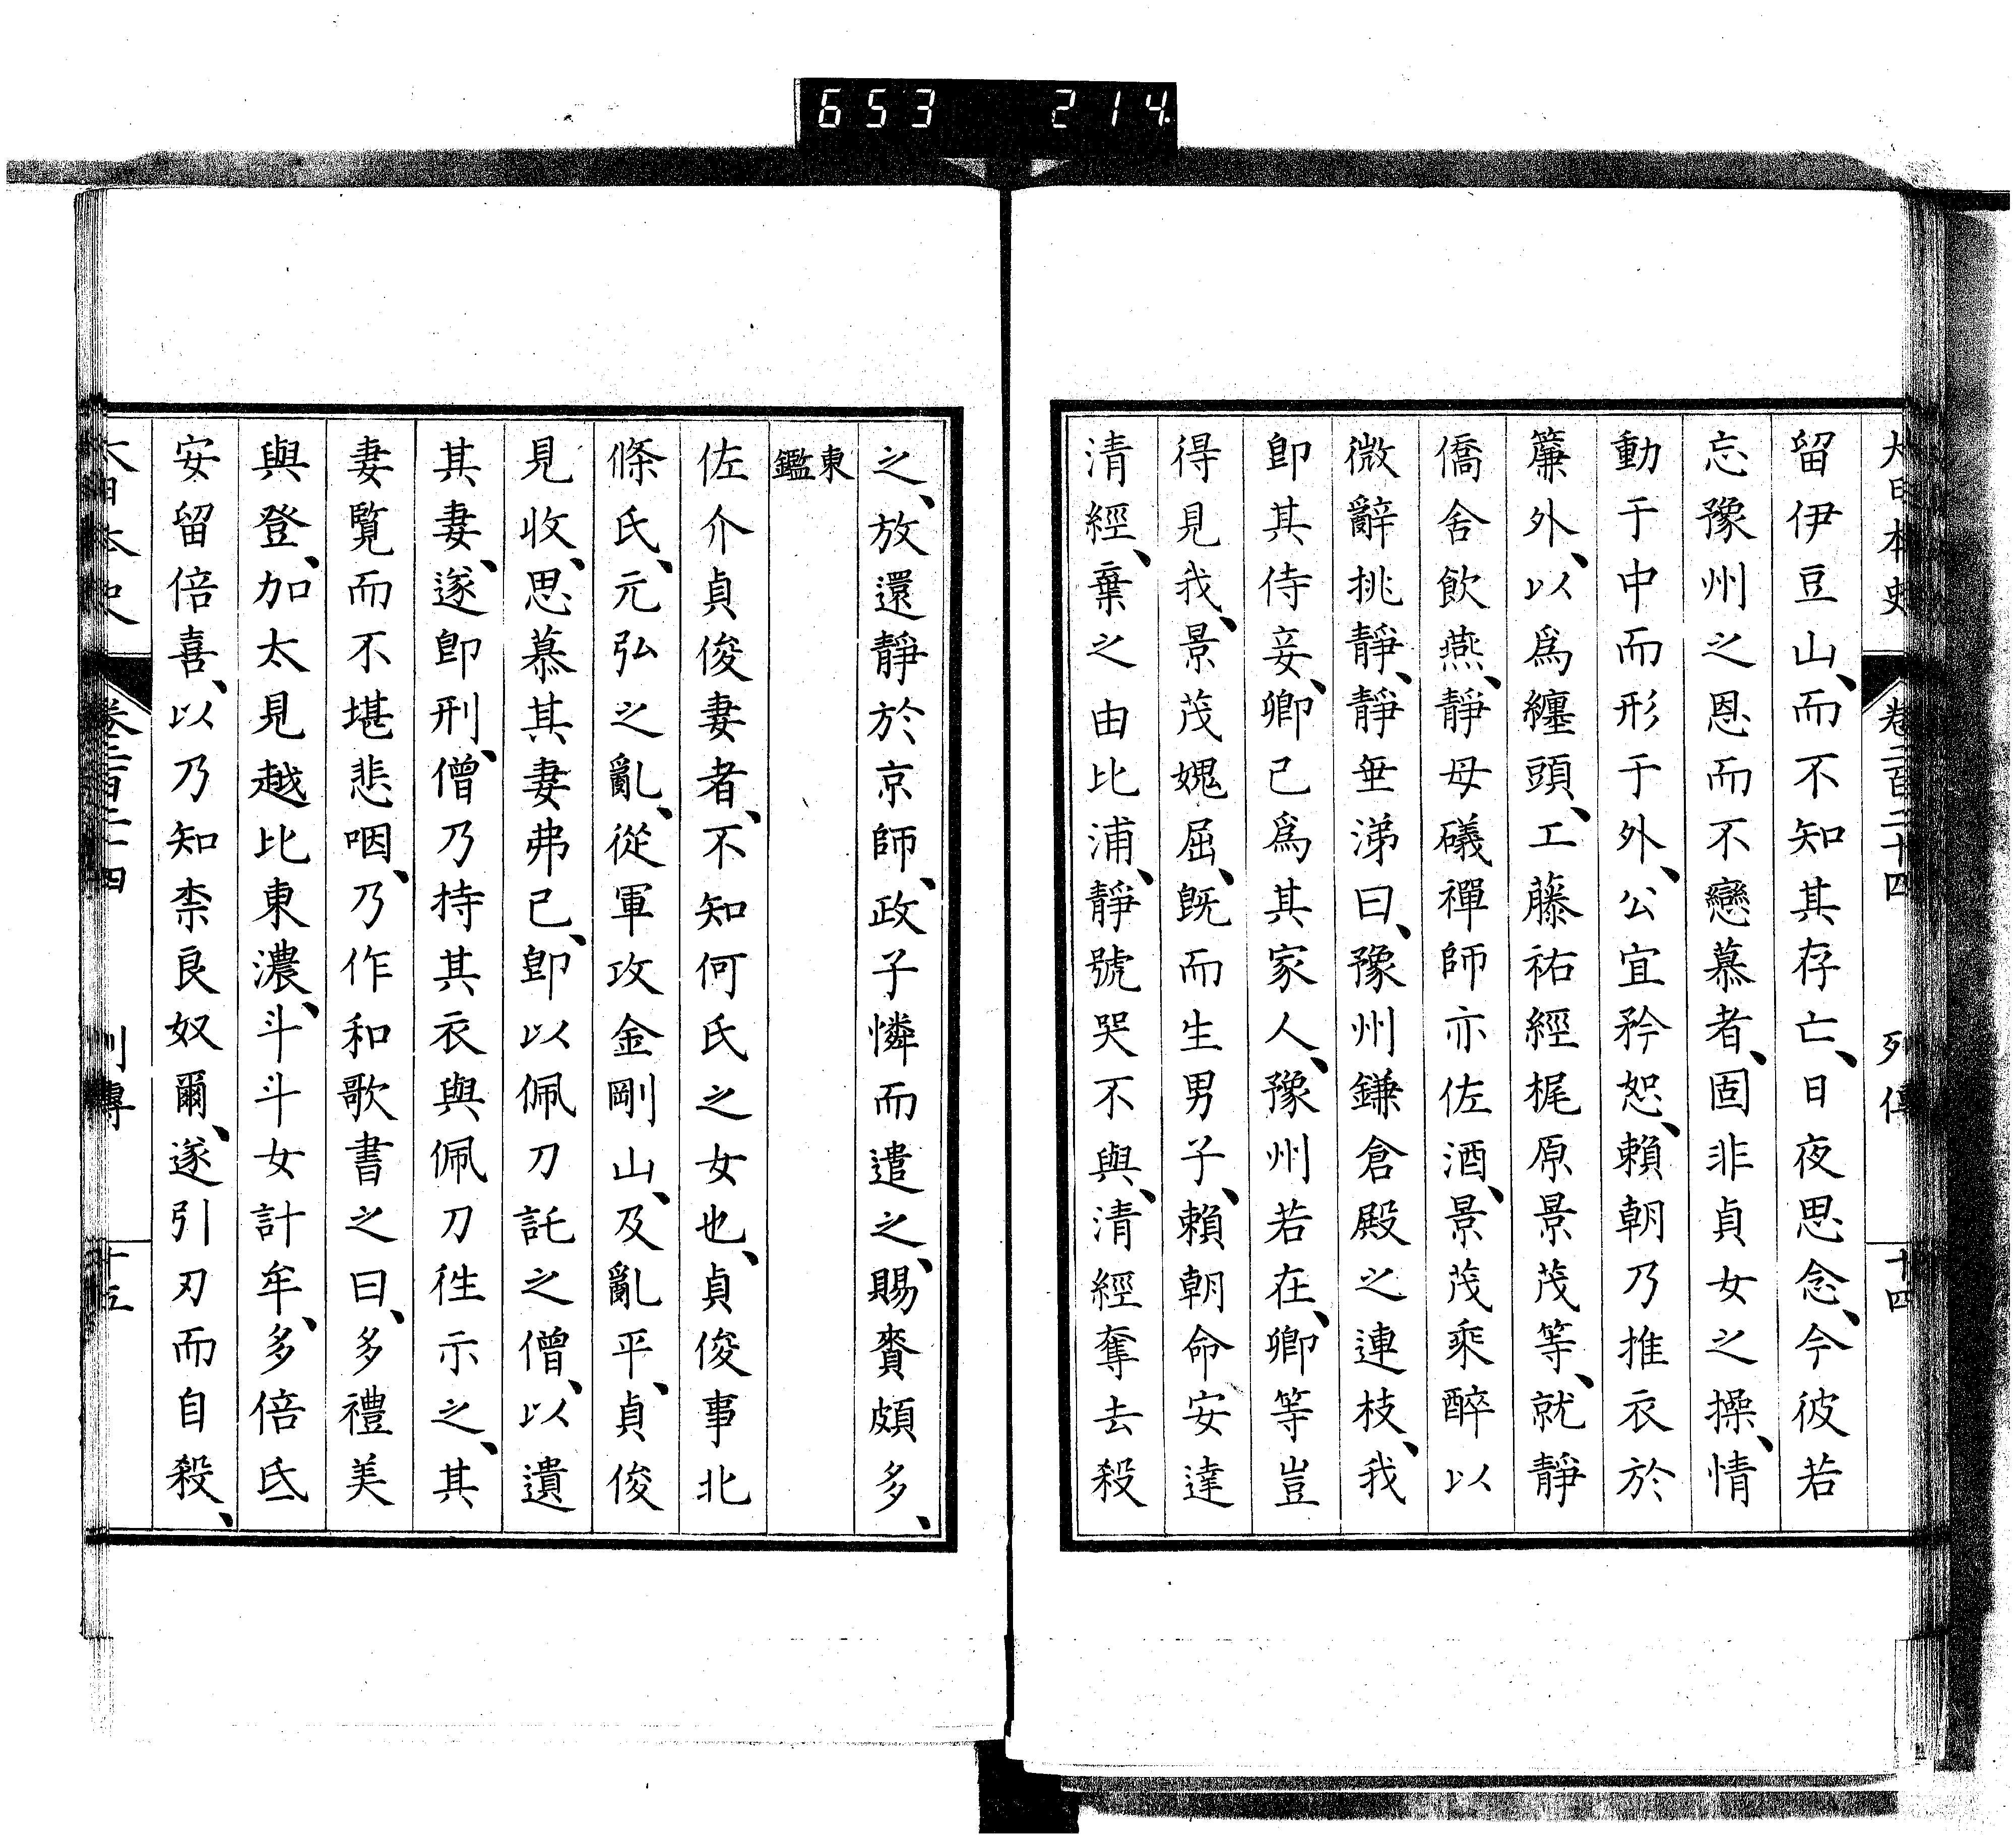 653 214
大日本史 卷二百二十四 列傳 十四
留伊豆山、而不知其存亡、日夜思念、今彼若
忘豫州之恩而不戀慕者、固非貞女之操、情
動于中而形于外、公宜矜恕、賴朝乃推衣於
簾外、以爲纏頭、工藤祐經梶原景茂等、就靜
僑舍飲燕、靜母礒禪師亦佐酒、景茂乘醉以
微辭挑靜、靜垂涕曰、豫州鎌倉殿之連枝、我
卽其侍妾、卿已爲其家人、豫州若在、卿等豈
得見我、景茂媿屈、旣而生男子、賴朝命安達
清經、棄之由比浦、靜號哭不與、清經奪去殺
之、放還靜於京師、政子憐而遣之、賜賚頗多、
東鑑
佐介貞俊妻者、不知何氏之女也、貞俊事北
條氏、元弘之亂、從軍攻金剛山、及亂平、貞俊
見收、思慕其妻弗已、卽以佩刀託之僧、以遺
其妻、遂卽刑、僧乃持其衣與佩刀徃示之、其
妻覽而不堪悲咽、乃作和歌書之曰、多禮美
與登、加太見越比東濃、斗斗女計牟、多倍氐
安留倍喜、以乃知柰良奴爾、遂引刃而自殺、
大日本史 卷二百二十四 列傳 十五